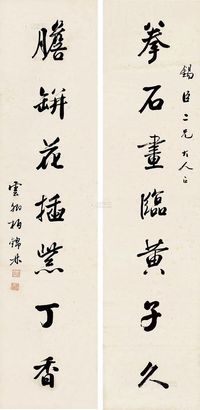 錫臣二兄大人正
拳石畫臨黃子久
膽缾花插紫丁香
雲卿柏錦林